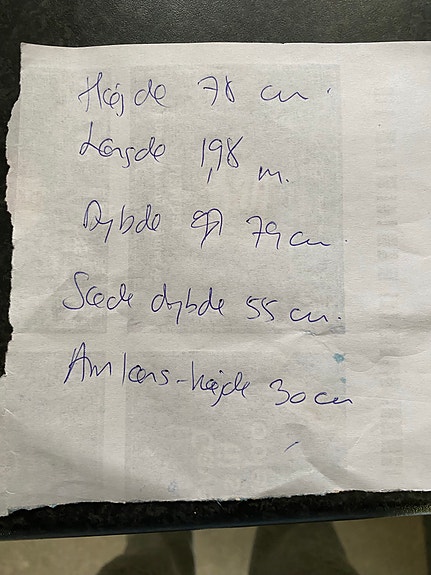 Højde 78 cm.
Længde 1,98 m.
Dybde 79 cm.
Sæde dybde 55 cm.
Armlæns-højde 30 cm